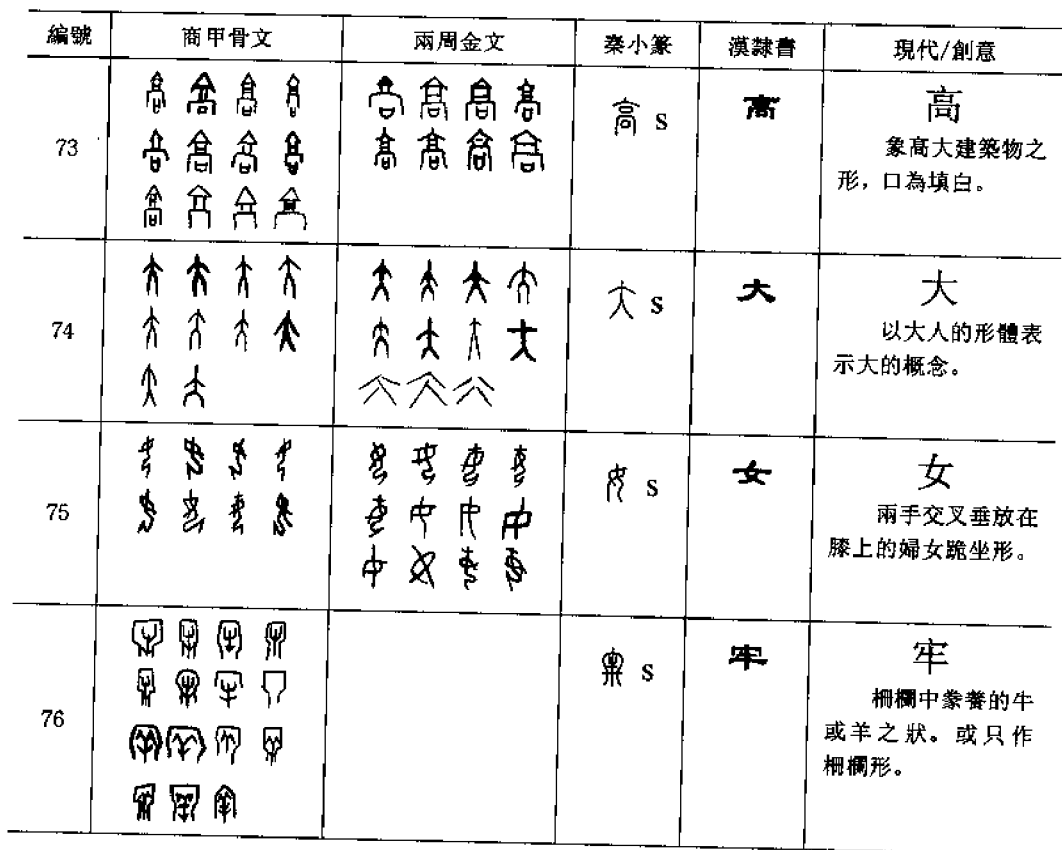 編號 商甲骨文 兩周金文 秦小篆 漢隸書 現代/創意
73 高 S 高 高
象高大建築物之
形，口為填白。
74 大 S 大 大
以大人的形體表
示大的概念。
75 女 S 女 女
兩手交叉垂放在
膝上的婦女跪坐形。
76 牢 S 牢 牢
柵欄中豢養的牛
或羊之狀。或只作
柵欄形。